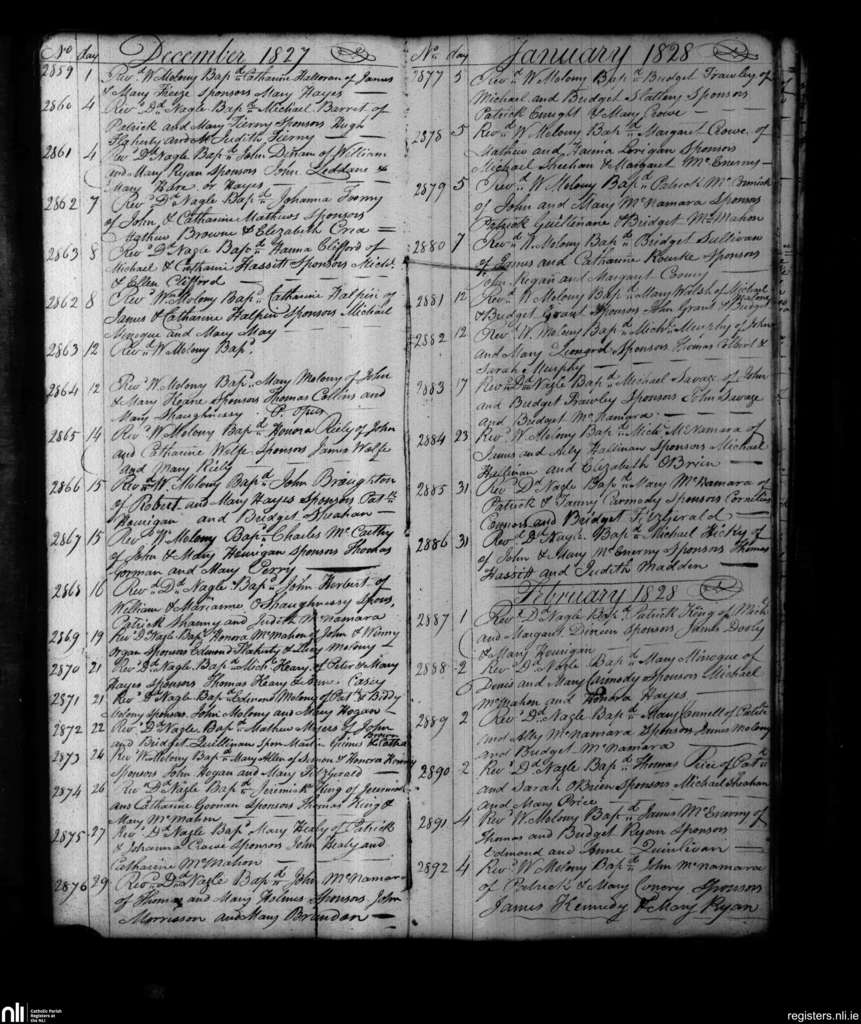 No day December 1827
2859 1 Revd W Molony Bapd Catharine Halloran of James
& Mary Sponsors Mary Hayes
2860 4 Revd Dd Nagle Bapd Michael Barret of
Patrick and Mary Tierny Sponsors Hugh
Flaherty and Judith Tierny
2861 4 Revd Dd Nagle Bapd John of William
and Mary Ryan Sponsors John Leddane &
Mary Hare or Hayes
2862 7 Revd Dd Nagle Bapd Johanna
of John & Catharine Mathews Sponsors
Mathew Browne & Elizabeth
2863 8 Revd Dd Nagle Bapd Hanna Clifford of
Michael & Catharine Hassitt Sponsors Michl
& Ellen Clifford
2862 8 Revd W Molony Bapd Catharine Halpin of
James & Catharine Halpin Sponsors Michael
Minogue and Mary
2863 12 Revd W Molony Bapd
2864 12 Revd W Molony Bapd Mary Molony of John
& Mary Keane Sponsors Thomas Collins and
Mary Shaughnessy
2865 14 Revd W Molony Bapd Honora Reely of John
and Catharine Wolfe Sponsors James Wolfe
and Mary
2866 15 Revd W Molony Bapd John Braughton
of Robert and Mary Hayes Sponsors Patk
Hourigan and Bridget Sheahan
2867 15 Revd W Molony Bapd Charles McCarthy
of John & Mary Hourigan Sponsors Thomas
Gorman and Mary Perry
2868 16 Revd Dd Nagle Bapd John Herbert of
William & Marianne OShaughnessy Spons,
Patrick Shanny and Judith McNamara
2869 19 Revd D Nagle Bapd Honora McMahon of John & Winny
Organ Sponsors Edmund Flaherty & Lucy Molony
2870 21 Revd Dd Nagle Bapd Michl Heary of Peter & Mary
Hayes Sponsors Thomas Heary & Casey
2871 21 Revd Dd Nagle Bapd Edmond Molony of Patk & Biddy
Molony Sponsors John Molony and Mary Hogan
2872 22 Revd Dd Nagle Bapd Mathew Myers of John Brown
and Bridget Quillinan Spon Martin Grimes
2873 24 Revd W Molony Bapd Mary Allen of Simon & Honora
Sponsors John Hogan and Mary Fitzgerald
2874 26 Revd Dd Nagle Bapd Jeremiah King of Jeremiah
and Catharine Gorman Sponsors Thomas King &
Mary McMahon
2875 27 Revd Dd Nagle Bapd Mary Healy of Patrick
& Johanna Crowe Sponsors John Healy and
Catharine McMahon
2876 29 Revd Dd Nagle Bapd John McNamara
of Thomas and Mary Holmes Sponsors John
Morrisson and Mary Brandon
No day January 1828
2877 5 Revd W Molony Bapd Bridget Frawley of
Michael and Bridget Slattery Sponsors
Patrick Enright & Mary Crowe
2878 5 Revd W Molony Bapd Margaret Crowe of
Mathew and Hanna Lorigan Sponsors
Michael Sheehan & Margaret McEnerny
2879 5 Revd W Molony Bapd Patrick McCormick
of John and Mary McNamara Sponsors
Patrick Guillinane & Bridget McMahon
2880 7 Revd W Molony Bapd Bridget Sullivan
of James and Catharine Rourke Sponsors
John Regan and Margaret
2881 12 Revd W Molony Bapd Mary Walsh of Michael
& Bridget Grant Sponsors John Grant & Bridget Malony
2882 12 Revd W Molony Bapd Michl Murphy of John
and Mary Leonard Sponsors Thomas Colbert &
Sarah Murphy
2883 17 Revd Dd Nagle Bapd Michael Savage of John
and Bridget Frawley Sponsors John Savage
and Bridget McNamara
2884 23 Revd W Molony Bapd Michl McNamara of
James and Ally Hallinan Sponsors Michael
Hallinan and Elizabeth OBrien
2885 31 Revd Dd Nagle Bapd Mary McNamara of
Patrick & Fanny Carmody Sponsors Cornelius
and Bridget Fitzgerald
2886 31 Revd Dd Nagle Bapd Michael Hickey of
of John & Mary McEnerny Sponsors Thomas
Hassitt and Judith Madden
February 1828
2887 1 Revd Dd Nagle Bapd Patrick King of Michl
and Margaret Dineen Sponsors James Dooly
& Mary Hourigan
2888 2 Revd Dd Nagle Bapd Mary Minogue of
Denis and Mary Carmody Sponsors Michael
McMahon and Honora Hayes
2889 2 Revd Dd Nagle Bapd Mary Connell of Patrick
and Ally McNamara Sponsors James Molony
and Bridget McNamara
2890 2 Revd Dd Nagle Bapd Thomas Price of Patk
and Sarah OBrien Sponsors Michael Sheahan
and Mary Price
2891 4 Revd W Molony Bapd James McEnerny of
Thomas and Bridget Ryan Sponsors
Edmond and Anne Quinlivan
2892 4 Revd W Molony Bapd John McNamara
of Patrick & Mary Conery Sponsors
James Kennedy & Mary Ryan
nli Catholic Parish
Registers at
the NLI
registers.nli.ie